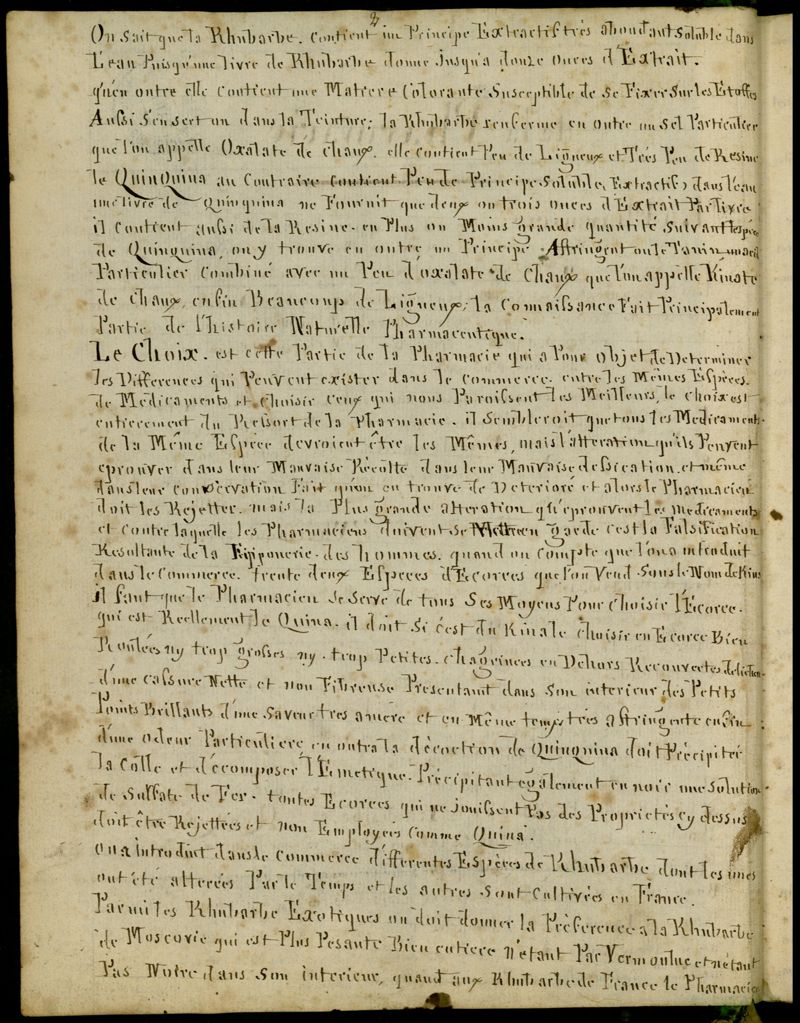 2
On sait que la Rhubarbe. contient un Principe Extractif très abondant soluble dans
L'eau Puisqu'une livre de Rhubarbe donne jusqu'a douze onces d'Extrait.
qu'en outre elle contient une Matiere Colorante susceptible de se Fixer sur les Etoffes
Aussi s'en sert on dans la Teinture; la Rhubarbe renferme en outre un sel Particulier
que l'on appelle Oxalate de chaux. elle contient Peu de Ligneux et Très Peu de Resine
le Quinquina au Contraire contient Peu de Principe soluble (Extractif) dans l'eau
une livre de Quinquina ne Fournit que deux ou trois onces d'Extrait Par livre
il contient aussi de la Resine. en Plus ou Moins grande quantité suivant l'espèce
de Quinquina, on y trouve en outre un Principe Astringent ou le Tanin un acid
Particulier Combiné avec un Peu d'oxalate de Chaux que l'on appelle Kinate
de chaux, enfin Beaucoup de Ligneux; la Connaissance Fait Principalement
Partie de l'histoire Naturelle Pharmaceutique.
Le Choix. est cette Partie de la Pharmacie qui a Pour objet de Determiner
les Differences qui Peuvent exister dans le commerce. entre les Mêmes Espèces.
de Medicaments et choisir ceux qui nous Paroissent les Meilleurs, le choix est
entierement du Ressort de la Pharmacie. il sembleroit que tous les Medicaments
de la Même Espèce devroient être les Mêmes, mais l'alteration qu'ils Peuvent
eprouver dans leur Mauvaise Récolte dans leur Mauvaise dessication et même
dans leur conservation Fait qu'on en trouve de Deterioré et alors le Pharmacien
doit les Rejetter. mais la Plus grande alteration qu'eprouvent les medicaments
et contre laquelle les Pharmaciens doivent se Mettre en garde c'est la Falsification
Resultante de la Fripponerie. des hommes. quand on compte que l'on a introduit
dans le Commerce. trente deux Especes d'Ecorces que l'on Vend sous le Nom de Kina
il faut que le Pharmacien se serve de tous ses Moyens Pour choisir l'Ecorce.
qui est Reellement le Quina. il doit si c'est du Kina le choisir en Ecorce Bien
Roulées ny trop grosses ny. trop Petites. chagrinées en Dehors Recouvertes de lichen
d'une cassure Nette et non Fibreuse Presentant dans son interieur des Petits
Points Brillants d'une saveur tres amère et en Même temps très astringente enfin
d'une odeur Particuliere, en outre la décoction de Quinquina doit Précipiter
la Colle et décomposer l'Emetique. Précipitant également en noir une solution
de Sulfate de Fer. toutes Ecorces qui ne jouissent Pas des Proprietés cy dessus
doit être Rejettées et non Employées Comme Quina.
on a introduit dans le Commerce differentes Espèces de Rhubarbe dont les unes
ont été alterées Par le Temps et les autres sont Cultivées en France.
Parmi les Rhubarbe Exotiques on doit donner la Préference a la Rhubarbe
de Moscovie qui est Plus Pesante Bien entiere N'etant Par Vermoulue et n'étant
Pas Noire dans son interieur, quant aux Rhubarbe de France le Pharmacien